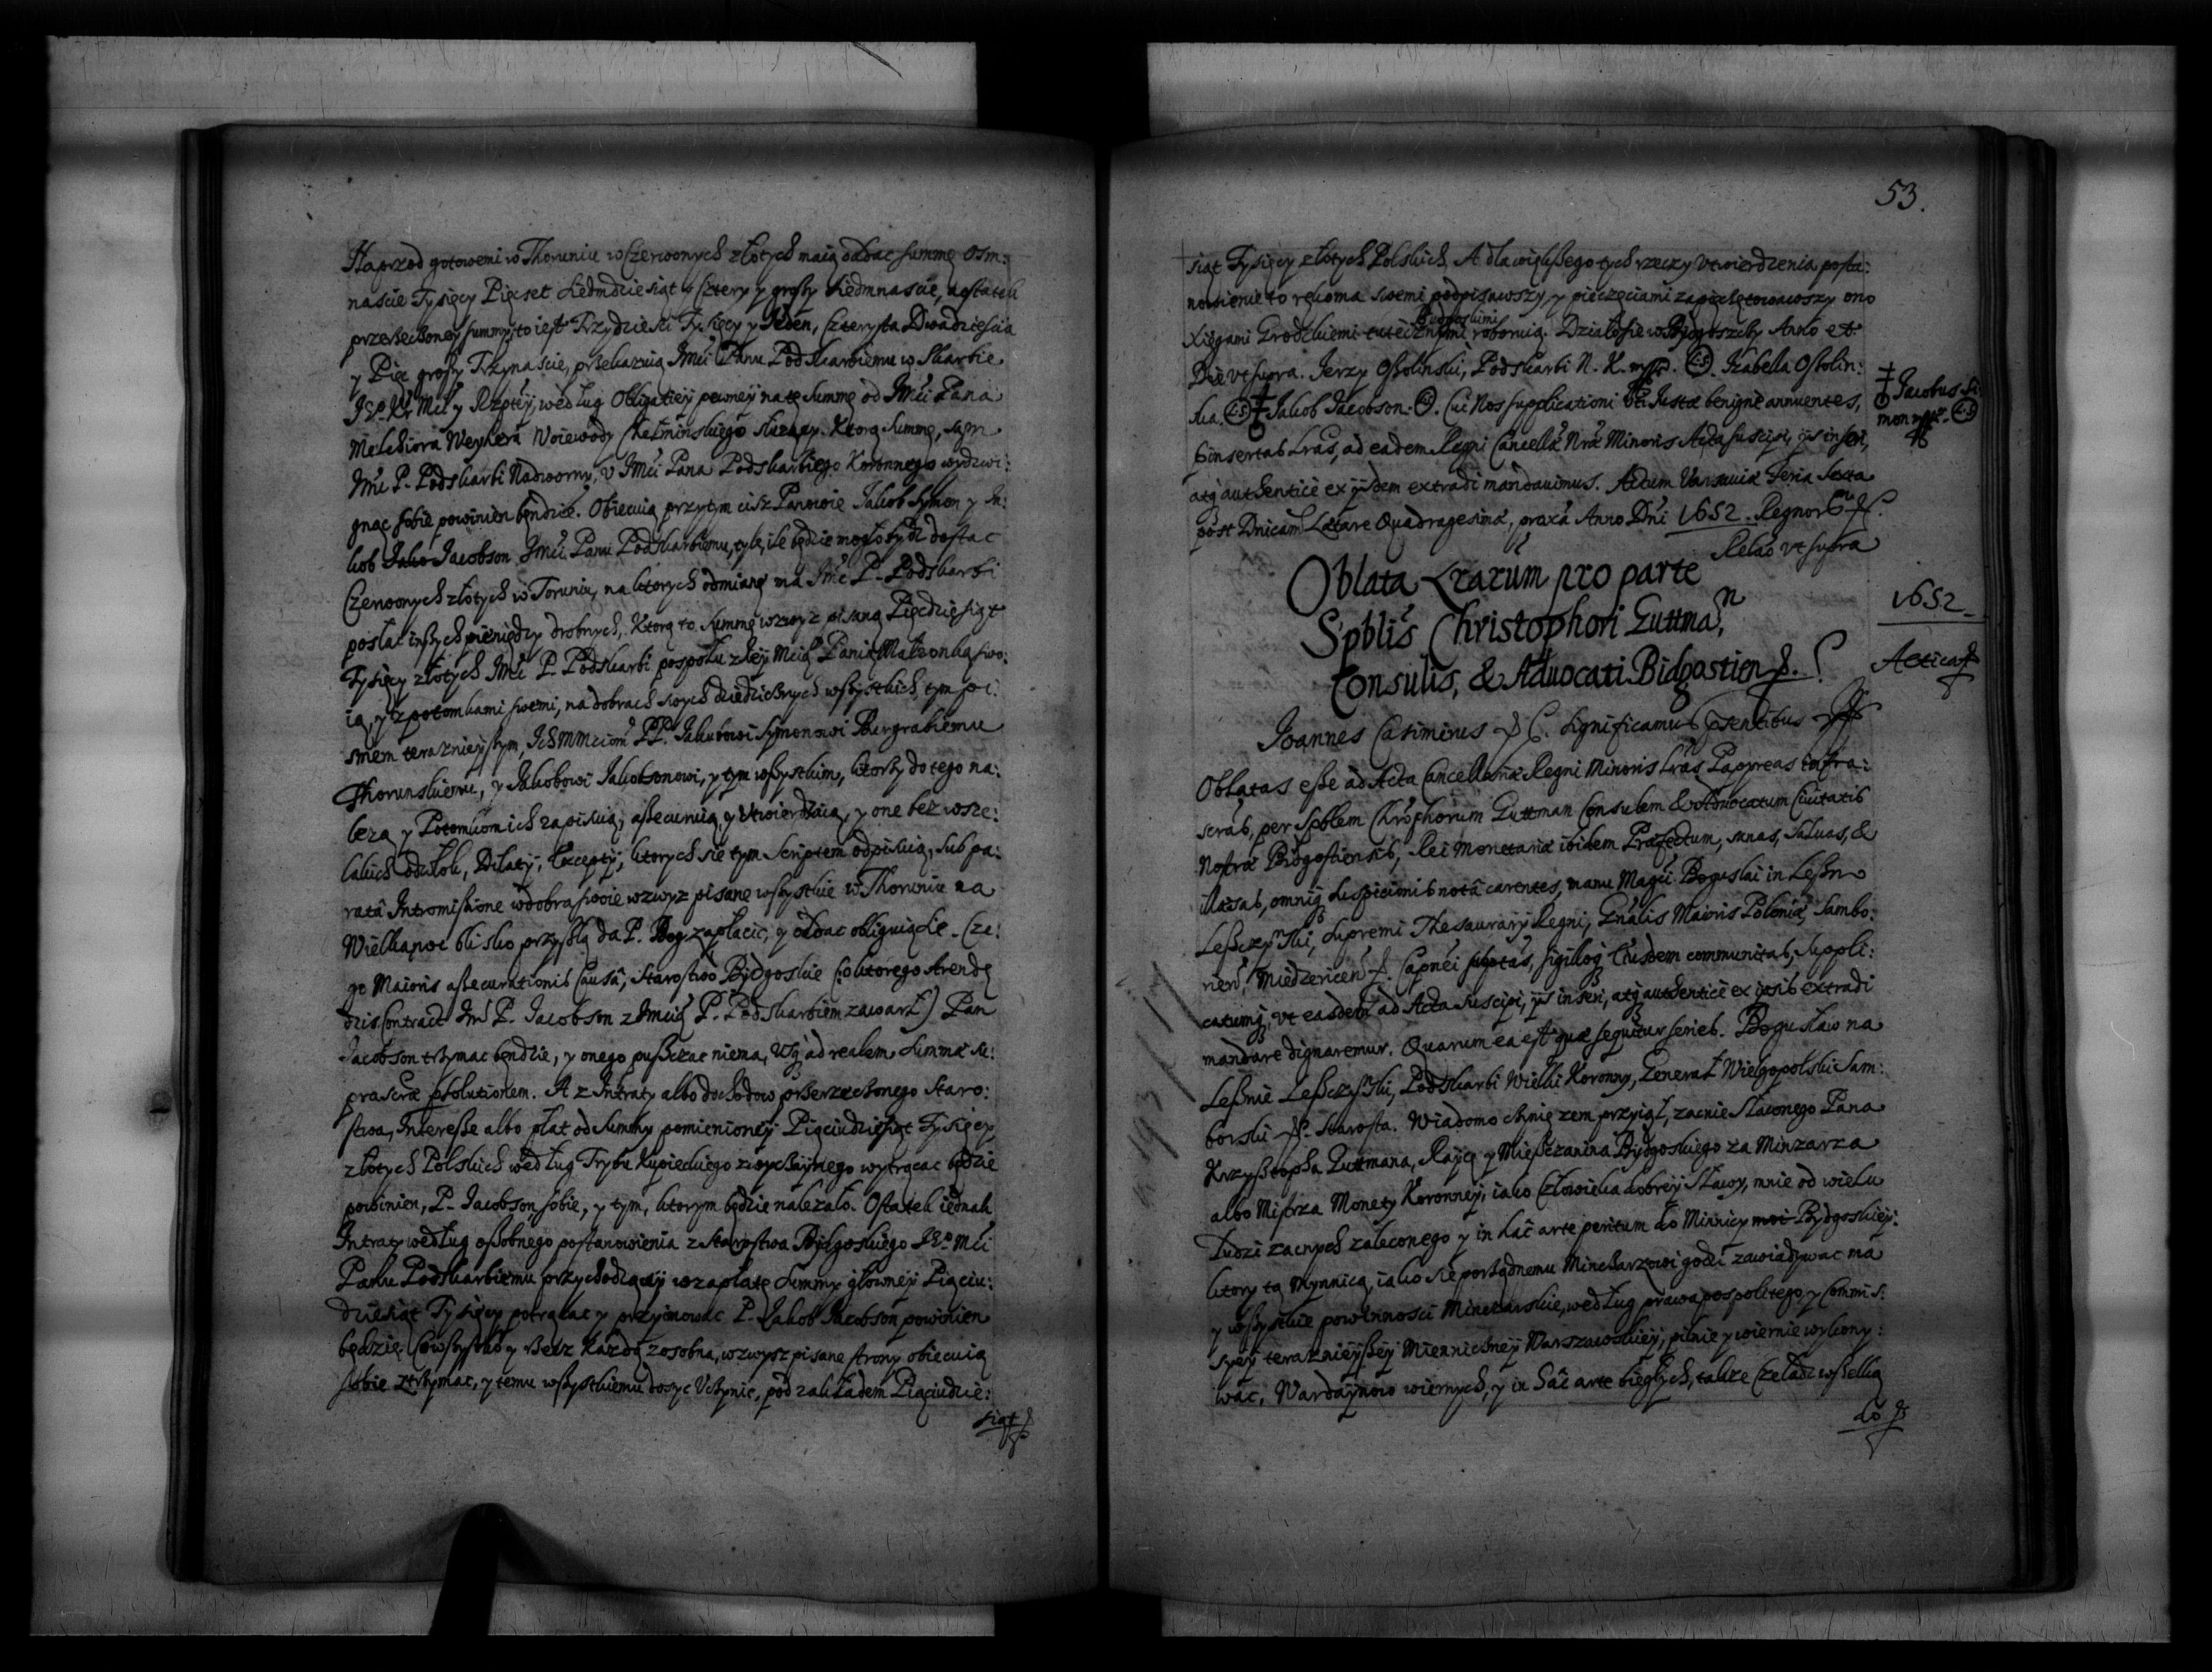 Naprzod gotowemi w Thoruniu w Czerwonych złotych maią oddac summę Osm:
nascie Tysięcy Pięcset Siedmdziesiąt y Cztery y groszy Siedmnascie, aostatek
przerzeczoney summy, to iest Trzydziesci Tysięcy y Jeden, Czterysta Dwadziescia
y Pięc groszy Trzynascie, przekazuią Jmći Panu Podskarbiemu w Skarbie
JKr Mći y Rzptey, według Obligatiey pewney na tę Summę od Jmći Pana
Melchiora Weyhera Woiewody Chełminskiego słuzący. Ktorą Summę, sam
Jmć P. Podskarbi Nadworny, v Jmći Pana Podskarbiego Koronnego wydzwi:
gnąc sobie powinien będzie. Obiecuią przytym ciż Panowie Jakob Symon y Ja:
kob Jacobson Jmći Panu Podskarbiemu, tyle, ile będzie mogło bydz dostac
Czerwonych złotych w Toruniu, na ktorych odmianę ma Jmć P. Podskarbi
posłac inszych pieniędzy drobnych. Ktorą to Summę wzwyz pisaną Pięcdziesiąt
Tysięcy złotych Jmć P. Podskarbi pospołu z Jey Mcią Panią Małzonką swo:
ią, y z potomkami swemi, na dobrach swych dziedzicznych wszystkich tym pi:
smem teraznieyszym, Ichmmciom PP. Jakubowi Symonowi Burgrabiemu
Thorunskiemu, y Jakobowi Jakobsonowi, y tym wszystkim, ktorzy do tego na:
lezą y Potomkom ich zapisuią, assecuruią, y Utwierdzaią, y one bez wsze:
lakich odwłok, Dilaty, Excepty, ktorych się tym Scriptem odpisuią, sub pa:
rata Intromissione w dobra swoie wzwyz pisane wszystkie w Thoruniu na
Wielkanoc blisko przyszłą da P. Bog zapłacic, y oddac obliguią się. Cze:
go Maioris assecurationis Causâ, Starostwo Bydgoskie (: o ktorego Arendę
dzis Contract Jmć P. Jacobson z Jmcią P. Podskarbiem zawarł) Pan
Jacobson trzymac będzie, y onego puszczac niema, Usq ad realem Summæ su:
prascræ psolutionem. A z Intraty albo dochodow przerzeczonego Staro:
stwa, Interesse albo płat od Summy pomienioney Pięciudziesiąt Tysięcy
złotych Polskich według Trybu Kupieckiego zwyczaynego wytrącac będzie
powinien, P. Jacobson sobie, y tym, ktorym będzie nalezało. Ostatek iednak
Intraty według osobnego postanowienia z Starostwa Bydgoskiego Jmći
Panu Podskarbiemu przychodzący w zapłatę Summy głowney Pięciu:
dziesiąt Tysięcy potrącac y przyimowac P. Jakob Jacobson powinien
będzie. Co wszystko y rzecz kazdą zosobna, wzwysz pisane strony obiecuią
sobie ztrzymac, y temu wszystkiemu dosyc Uczynic, pod zakładem Pięciudzie:
siąt
53.
siąt Tysięcy złotych Polskich. A dla większego tych rzeczy Utwierdzenia posta:
nowienie to rękoma swemi podpisawszy, y pieczęciami zapieczętowawszy ono
Bydgoskimi
Xięgami Grodzkiemi tutecznymi roboruią. Działo się w Bydgoszczy Anno et
Die vt supra. Jerzy Ossolinski, Podskarbi N. K. mpp. (L.S). Izabella Ossolin:
ska. (L.S) Jakob Jacobson. (L.S). Cui Nos supplicationi vti Justæ benignè annuentes,
Jacobus Si
mon mpp. (L.S)
insertas Lras, ad eadem Regni Cancellæ Nræ Minoris Acta suscipi, ijs inseri,
atq authenticè ex ijsdem extradi mandauimus. Actum Varsauiæ Feria Sexta
post Dnicam Lætare Quadragesimæ, proxa Anno Dni 1652. Regnor
Relao vt supra
Oblata Lrarum pro parte
Spblis Christophori Guttman,
Consulis, & Aduocati Bidgostien
1652
Acticat
Joannes Casimirus. Significamus psentibus
Oblatas esse ad Acta Cancellariæ Regni Minoris Lras Papyreas infra:
scras, per Spblem Chrophorum Guttman Consulem & Aduocatum Ciuitatis
Nostræ Bidgostiensis, Rei Monetariæ ibidem Præfectum, sanas, Saluas, &
illæsas, omniq Suspicionis notâ carentes, manu Magci Boguslai in Leszn
Leszczynski, Supremi Thesaurarij Regni, Gnalis Maioris Poloniæ, Sambo:
rien, Miedzericen. Capnei subtas, sigilloq Eiusdem communitas, Suppli:
catumq, vt easdem ad Acta suscipi, ijs inseri, atq authenticè ex ipsis extradi
mandare dignaremur. Quarum ea est quæ sequitur series. Bogusław na
Lesznie Leszczynski, Podskarbi Wielki Koronny, Generał Wielgopolski Sam:
borski. Starosta. Wiadomo czynię zem przyiął, zacnie Sławonego Pana
Krzysztopha Guttmana, Raycę y Mieszczanina Bydgoskiego za Minzarza
albo Mistrza Monety Koronney, iako Człowieka dobrey Sławy, mnie od wielu
Ludzi zacnych zaleconego y in hac arte peritum do Minnicy Bydgoskiey:
ktory tą Mynnicą, iako się porządnemu Mincharzowi godzi zawiadywac ma
y wszystkie powinnosci Mincarskie, według prawa pospolitego, y Commis:
syey teraznieyszey Mienniczney Warszawskiey, pilnie y wiernie wykony:
wac. Wardaynow wiernych, y in hac arte biegłych, takze Czeladz wszelką
do